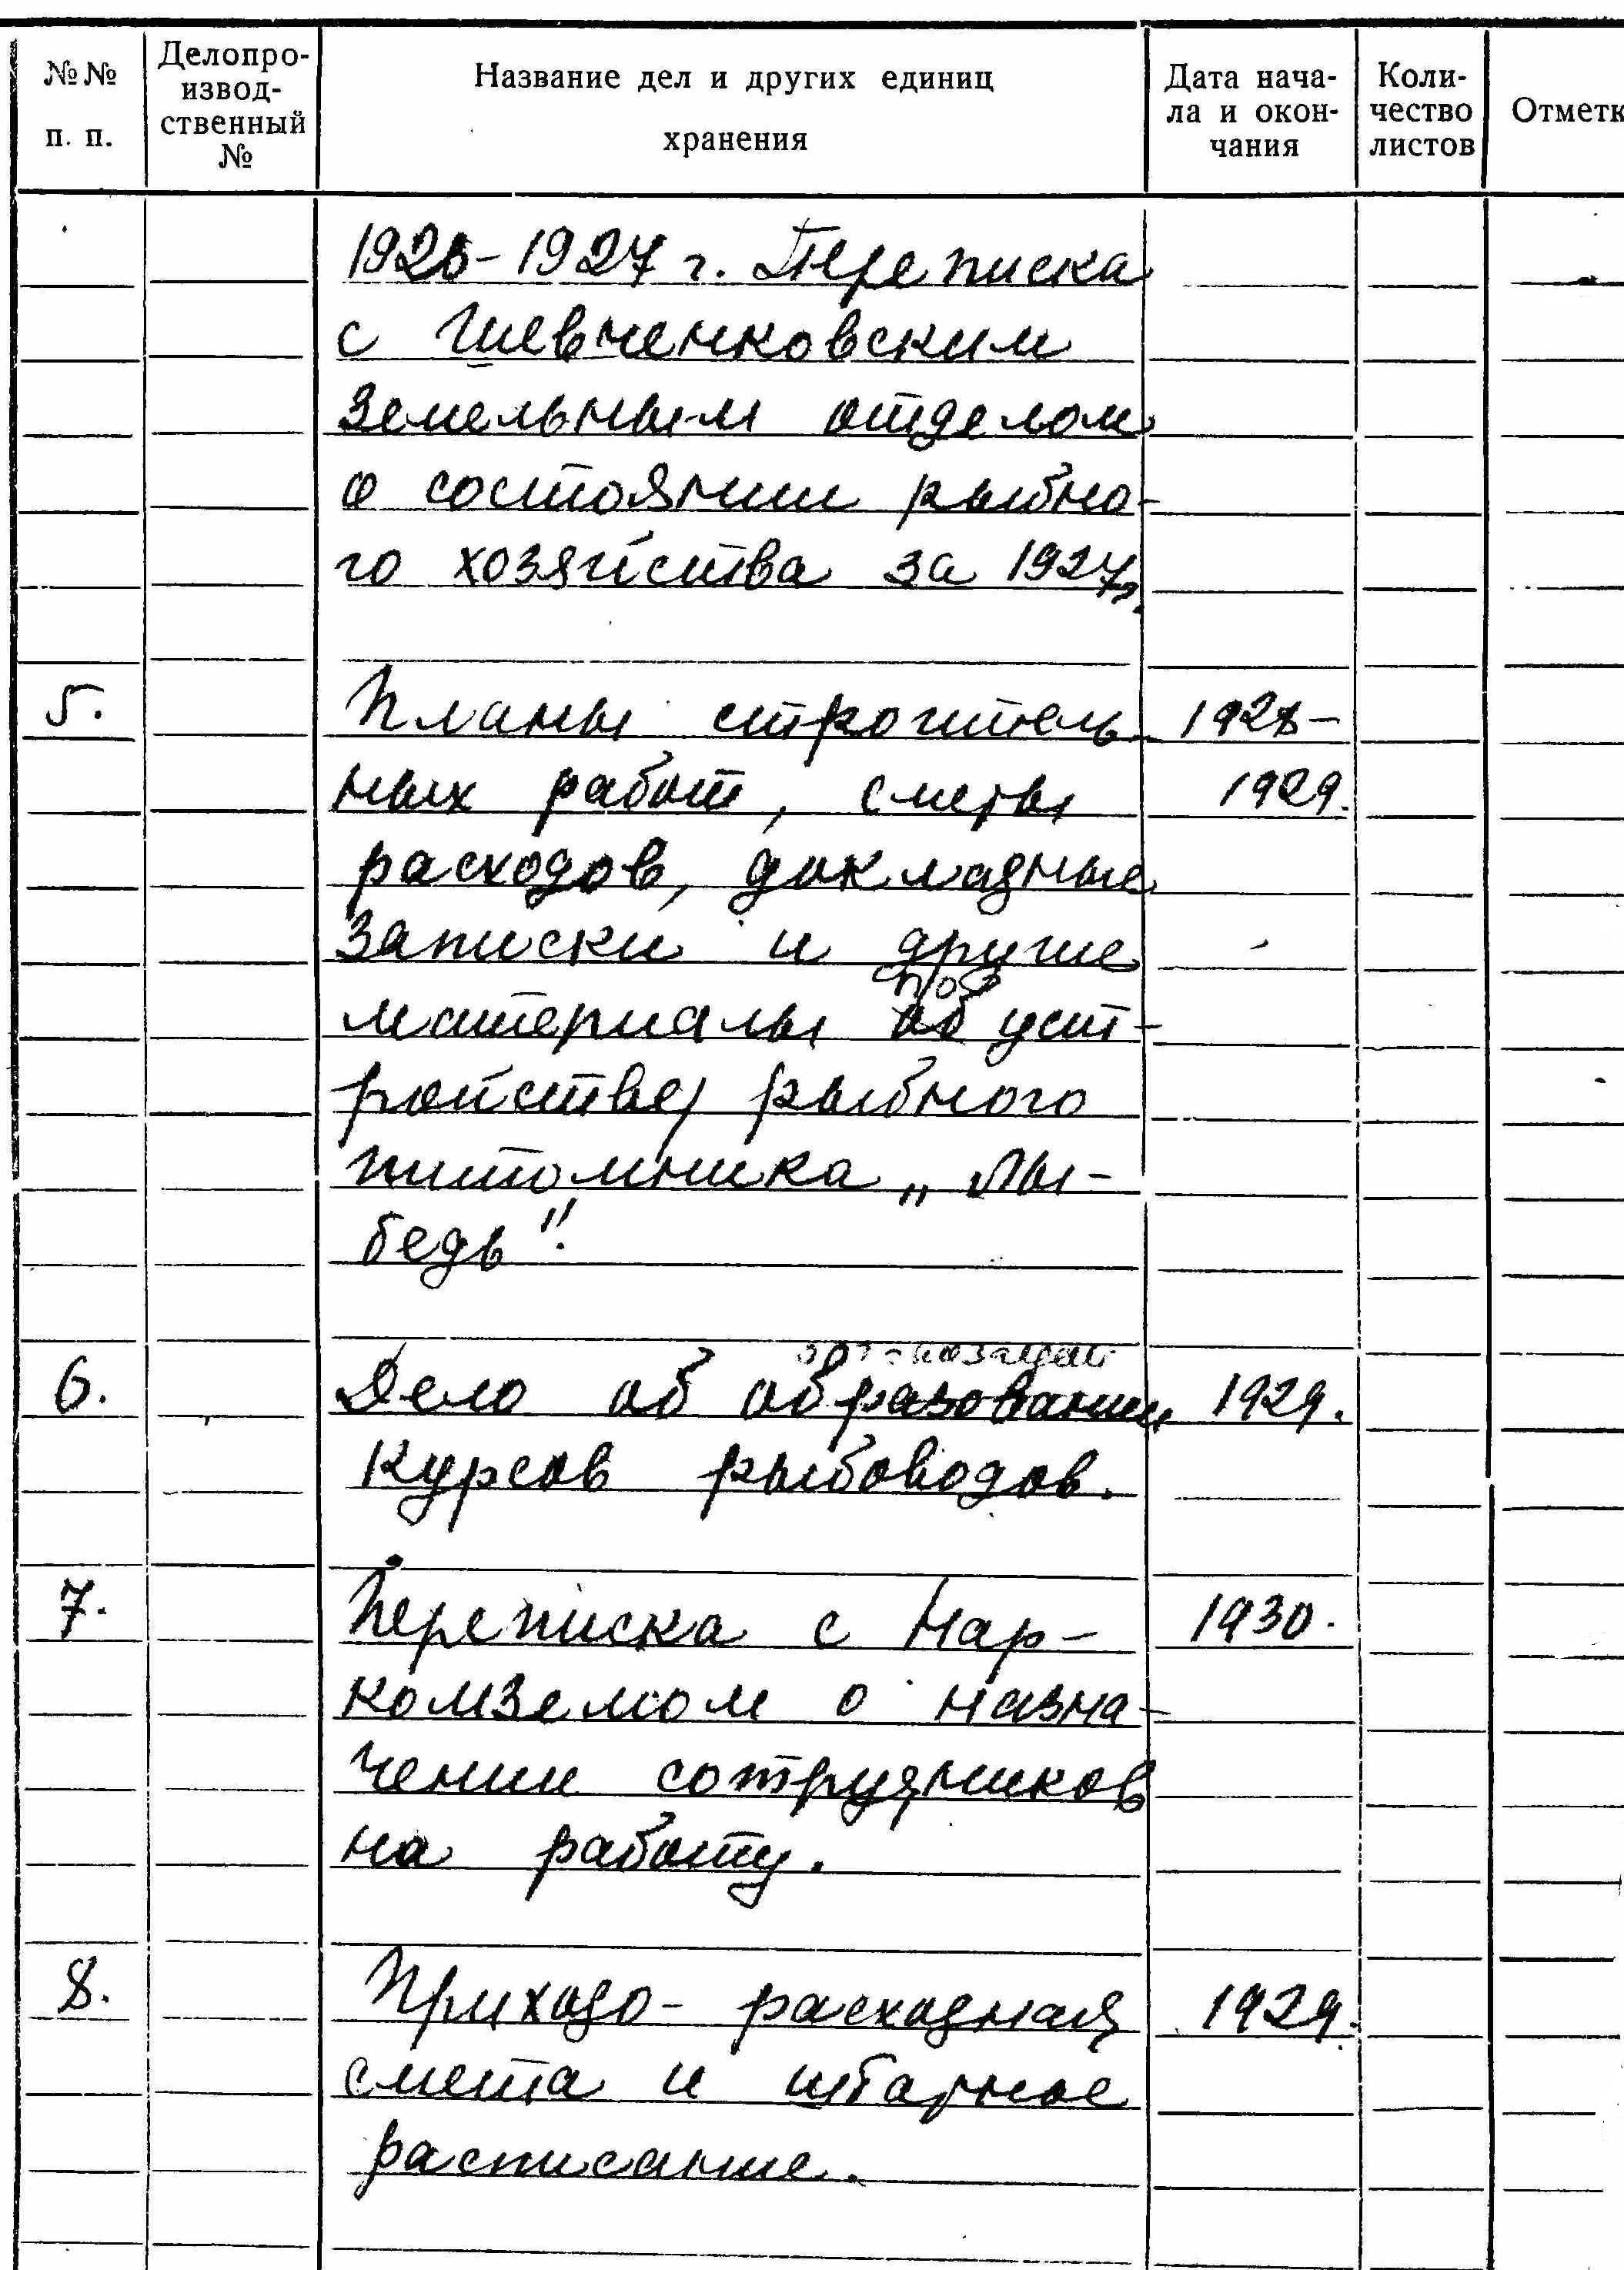 №№ п. п.
Делопро-
извод-
ственный
№
Название дел и других единиц
хранения
Дата нача-
ла и окон-
чания
Коли-
чество
листов
Отметк
1926-1927 г. Переписка
с Шевченковским
земельным отделом
о состоянии рыбно-
го хозяйства за 1927г.
5.
Планы строитель-
1928-
ных работ, сметы
1929.
расходов, докладные
записки и другие
материалы об уст-
ройству рыбного
питомника „Лы-
бедь".
6.
организации
Дело об образовании
1929.
курсов рыбоводов.
7.
Переписка с Нар-
1930.
комземом о назна-
чении сотрудников
на работу.
8.
Приходо-расходная
1929.
смета и штатное
расписание.